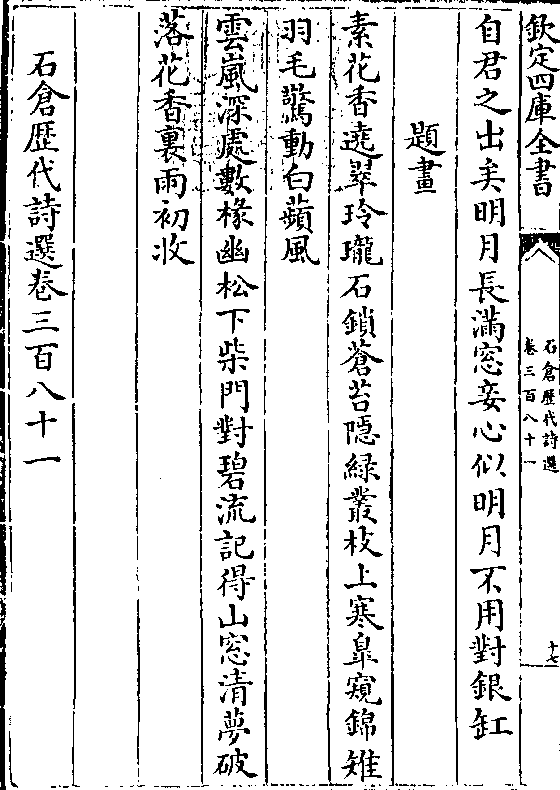 欽定四庫全書
石倉歴代詩選
卷三百八十一
十七
自君之出矣明月長滿窓妾心似明月不用對銀缸
題畫
素花香遶翠玲瓏石鎖蒼苔隠緑叢枝上寒皐窺錦雉
羽毛驚動白蘋風
雲嵐深處數椽幽松下柴門對碧流記得山窓清夢破
落花香裏雨初收
石倉歴代詩選卷三百八十一